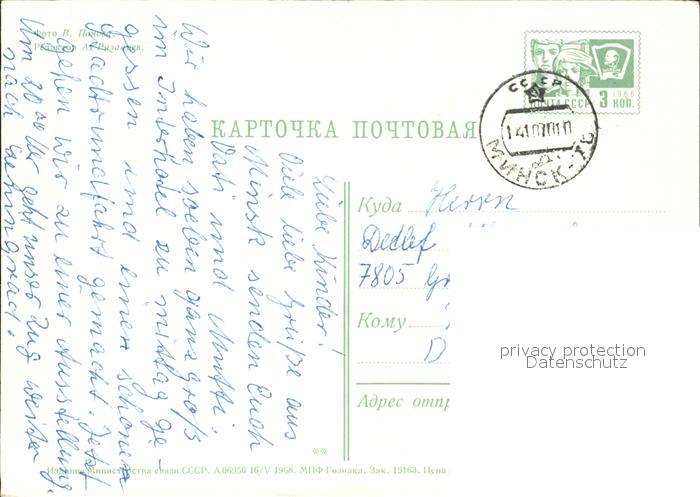 Фото В. Попова.
Редактор А. Рязанцев.
КАРТОЧКА ПОЧТОВАЯ
ПОЧТА СССР 1966
3 КОП.
СССР
МИНСК
Liebe Kinder!
Viele liebe Grüße aus
Minsk senden Euch
Vati und Mutti.
Wir haben soeben ganz groß
im Interhotel zu mittag ge-
gessen und einen schönen
Stadtrundfahrt gemacht. Jetzt
gehen wir zu einer Ausstellung.
Um 20 00 Uhr geht unser Zug weiter
nach Leningrad.
Куда Herrn
Detlef
7805
Кому
D
Адрес отпр
privacy protection
Datenschutz
**
Издание Министерства связи СССР. А 06956 16/V 1968. МПФ Гознака. Зак. 19163. Цена